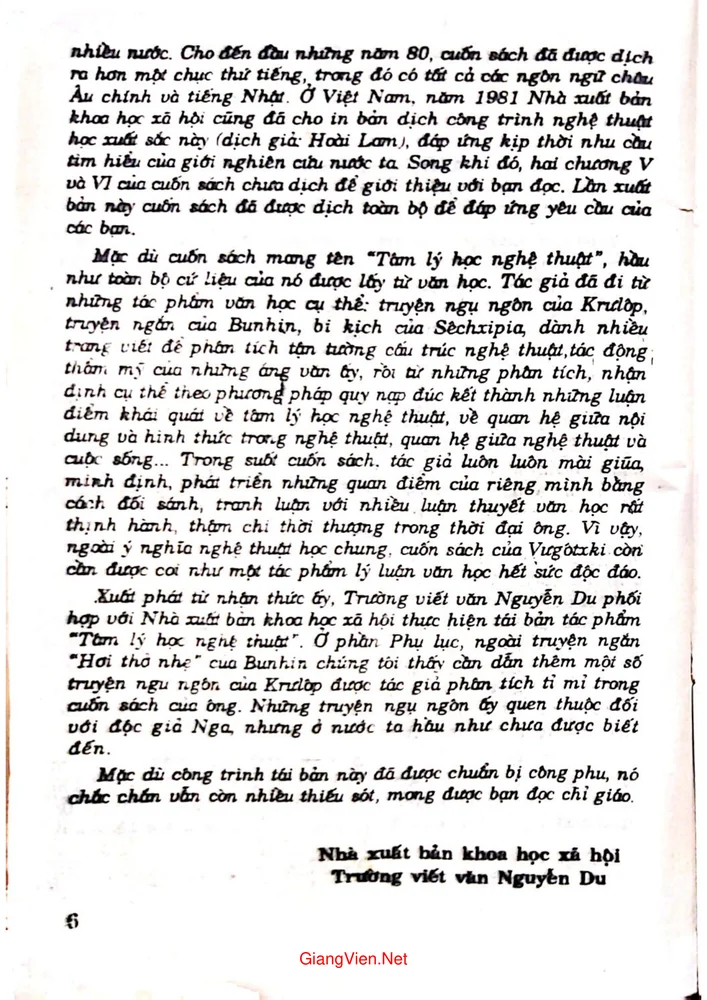 nhiều nước. Cho đến đầu những năm 80, cuốn sách đã được dịch
ra hơn một chục thứ tiếng, trong đó có tất cả các ngôn ngữ châu
Âu chính và tiếng Nhật. Ở Việt Nam, năm 1981 Nhà xuất bản
khoa học xã hội cũng đã cho in bản dịch công trình nghệ thuật
học xuất sắc này (dịch giả: Hoài Lam), đáp ứng kịp thời nhu cầu
tìm hiểu của giới nghiên cứu nước ta. Song khi đó, hai chương V
và VI của cuốn sách chưa dịch để giới thiệu với bạn đọc. Lần xuất
bản này cuốn sách đã được dịch toàn bộ để đáp ứng yêu cầu của
các bạn.
Mặc dù cuốn sách mang tên "Tâm lý học nghệ thuật", hầu
như toàn bộ cứ liệu của nó được lấy từ văn học. Tác giả đã đi từ
những tác phẩm văn học cụ thể: truyện ngụ ngôn của Krưlôp,
truyện ngắn của Bunhin, bi kịch của Sêchxipia, dành nhiều
trang viết để phân tích tận tường cấu trúc nghệ thuật, tác động
thẩm mỹ của những áng văn ấy, rồi từ những phân tích, nhận
định cụ thể theo phương pháp quy nạp đúc kết thành những luận
điểm khái quát về tâm lý học nghệ thuật, về quan hệ giữa nội
dung và hình thức trong nghệ thuật, quan hệ giữa nghệ thuật và
cuộc sống... Trong suốt cuốn sách. tác giả luôn luôn mài giũa,
minh định, phát triển những quan điểm của riêng mình bằng
cách đối sánh, tranh luận với nhiều luận thuyết văn học rất
thịnh hành, thậm chí thời thượng trong thời đại ông. Vì vậy,
ngoài ý nghĩa nghệ thuật học chung, cuốn sách của Vưgôtxki còn
cần được coi như một tác phẩm lý luận văn học hết sức độc đáo.
Xuất phát từ nhận thức ấy, Trường viết văn Nguyễn Du phối
hợp với Nhà xuất bản khoa học xã hội thực hiện tái bản tác phẩm
"Tâm lý học nghệ thuật". Ở phần Phụ lục, ngoài truyện ngắn
"Hơi thở nhẹ" của Bunhin chúng tôi thấy cần dẫn thêm một số
truyện ngụ ngôn của Krưlôp được tác giả phân tích tỉ mỉ trong
cuốn sách của ông. Những truyện ngụ ngôn ấy quen thuộc đối
với độc giả Nga, nhưng ở nước ta hầu như chưa được biết
đến.
Mặc dù công trình tái bản này đã được chuẩn bị công phu, nó
chắc chắn vẫn còn nhiều thiếu sót, mong được bạn đọc chỉ giáo.
Nhà xuất bản khoa học xã hội
Trường viết văn Nguyễn Du
6
GiangVien.Net